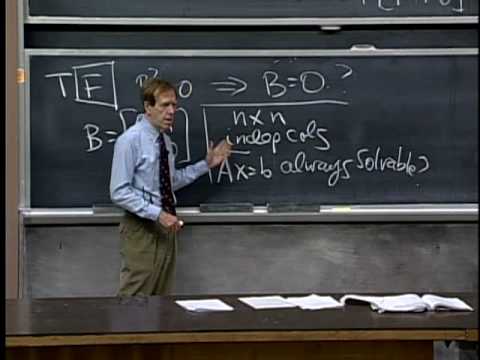 T F B² = 0 ⇒ B = 0 ?
B = [
n × n
indep cols
Ax=b always solvable?